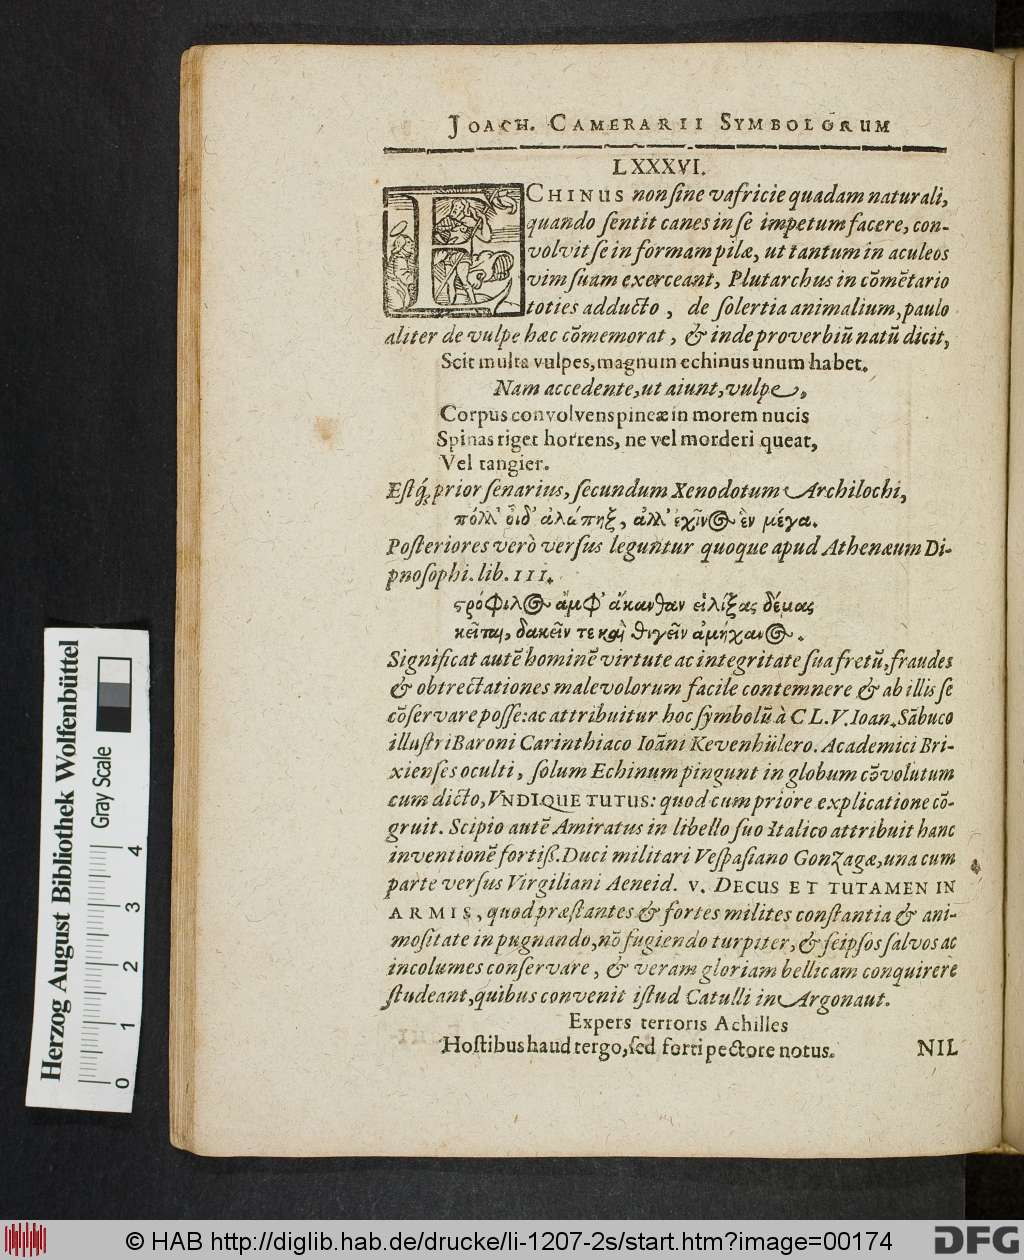 JOACH. CAMERARII SYMBOLORUM
LXXXVI.
ECHINUS non ſine vafricie quadam naturali,
quando ſentit canes in ſe impetum facere, con-
volvit ſe in formam pilæ, ut tantum in aculeos
vim ſuam exerceant, Plutarchus in cõmẽtario
toties adducto, de ſolertia animalium, paulo
aliter de vulpe hæc cõmemorat, & inde proverbiũ natũ dicit,
Scit multa vulpes, magnum echinus unum habet.
Nam accedente, ut aiunt, vulpe,
Corpus convolvens pineæ in morem nucis
Spinas riget horrens, ne vel morderi queat,
Vel tangier.
Eſtq́; prior ſenarius, ſecundum Xenodotum Archilochi,
πόλλ' οἶδ' ἀλώπηξ, ἀλλ' ἐχῖνος ἓν μέγα.
Poſteriores verò verſus leguntur quoque apud Athenæum Di-
pnoſophi. lib. III.
στρόφιλος ἀμφ' ἄκανθαν εἰλίξας δέμας
κεῖται, δακεῖν τε καὶ θιγεῖν ἀμήχανος.
Significat autẽ hominẽ virtute ac integritate ſua fretũ, fraudes
& obtrectationes malevolorum facile contemnere & ab illis ſe
cõſervare poſſe: ac attribuitur hoc ſymbolũ à CL. V. Ioan. Sãbuco
illuſtri Baroni Carinthiaco Ioãni Kevenhülero. Academici Bri-
xienſes oculti, ſolum Echinum pingunt in globum cõvolutum
cum dicto, VNDIQUE TUTUS: quod cum priore explicatione cõ-
gruit. Scipio autẽ Amiratus in libello ſuo Italico attribuit hanc
inventionẽ fortiß. Duci militari Veſpaſiano Gonzagæ, una cum
parte verſus Virgiliani Aeneid. V. DECUS ET TUTAMEN IN
ARMIS, quod præſtantes & fortes milites conſtantia & ani-
moſitate in pugnando, nõ fugiendo turpiter, & ſeipſos ſalvos ac
incolumes conſervare, & veram gloriam bellicam conquirere
ſtudeant, quibus convenit iſtud Catulli in Argonaut.
Expers terroris Achilles
Hoſtibus haud tergo, ſed forti pectore notus.
NIL
Herzog August Bibliothek Wolfenbüttel
Gray Scale
0 1 2 3 4
© HAB http://diglib.hab.de/drucke/li-1207-2s/start.htm?image=00174
DFG